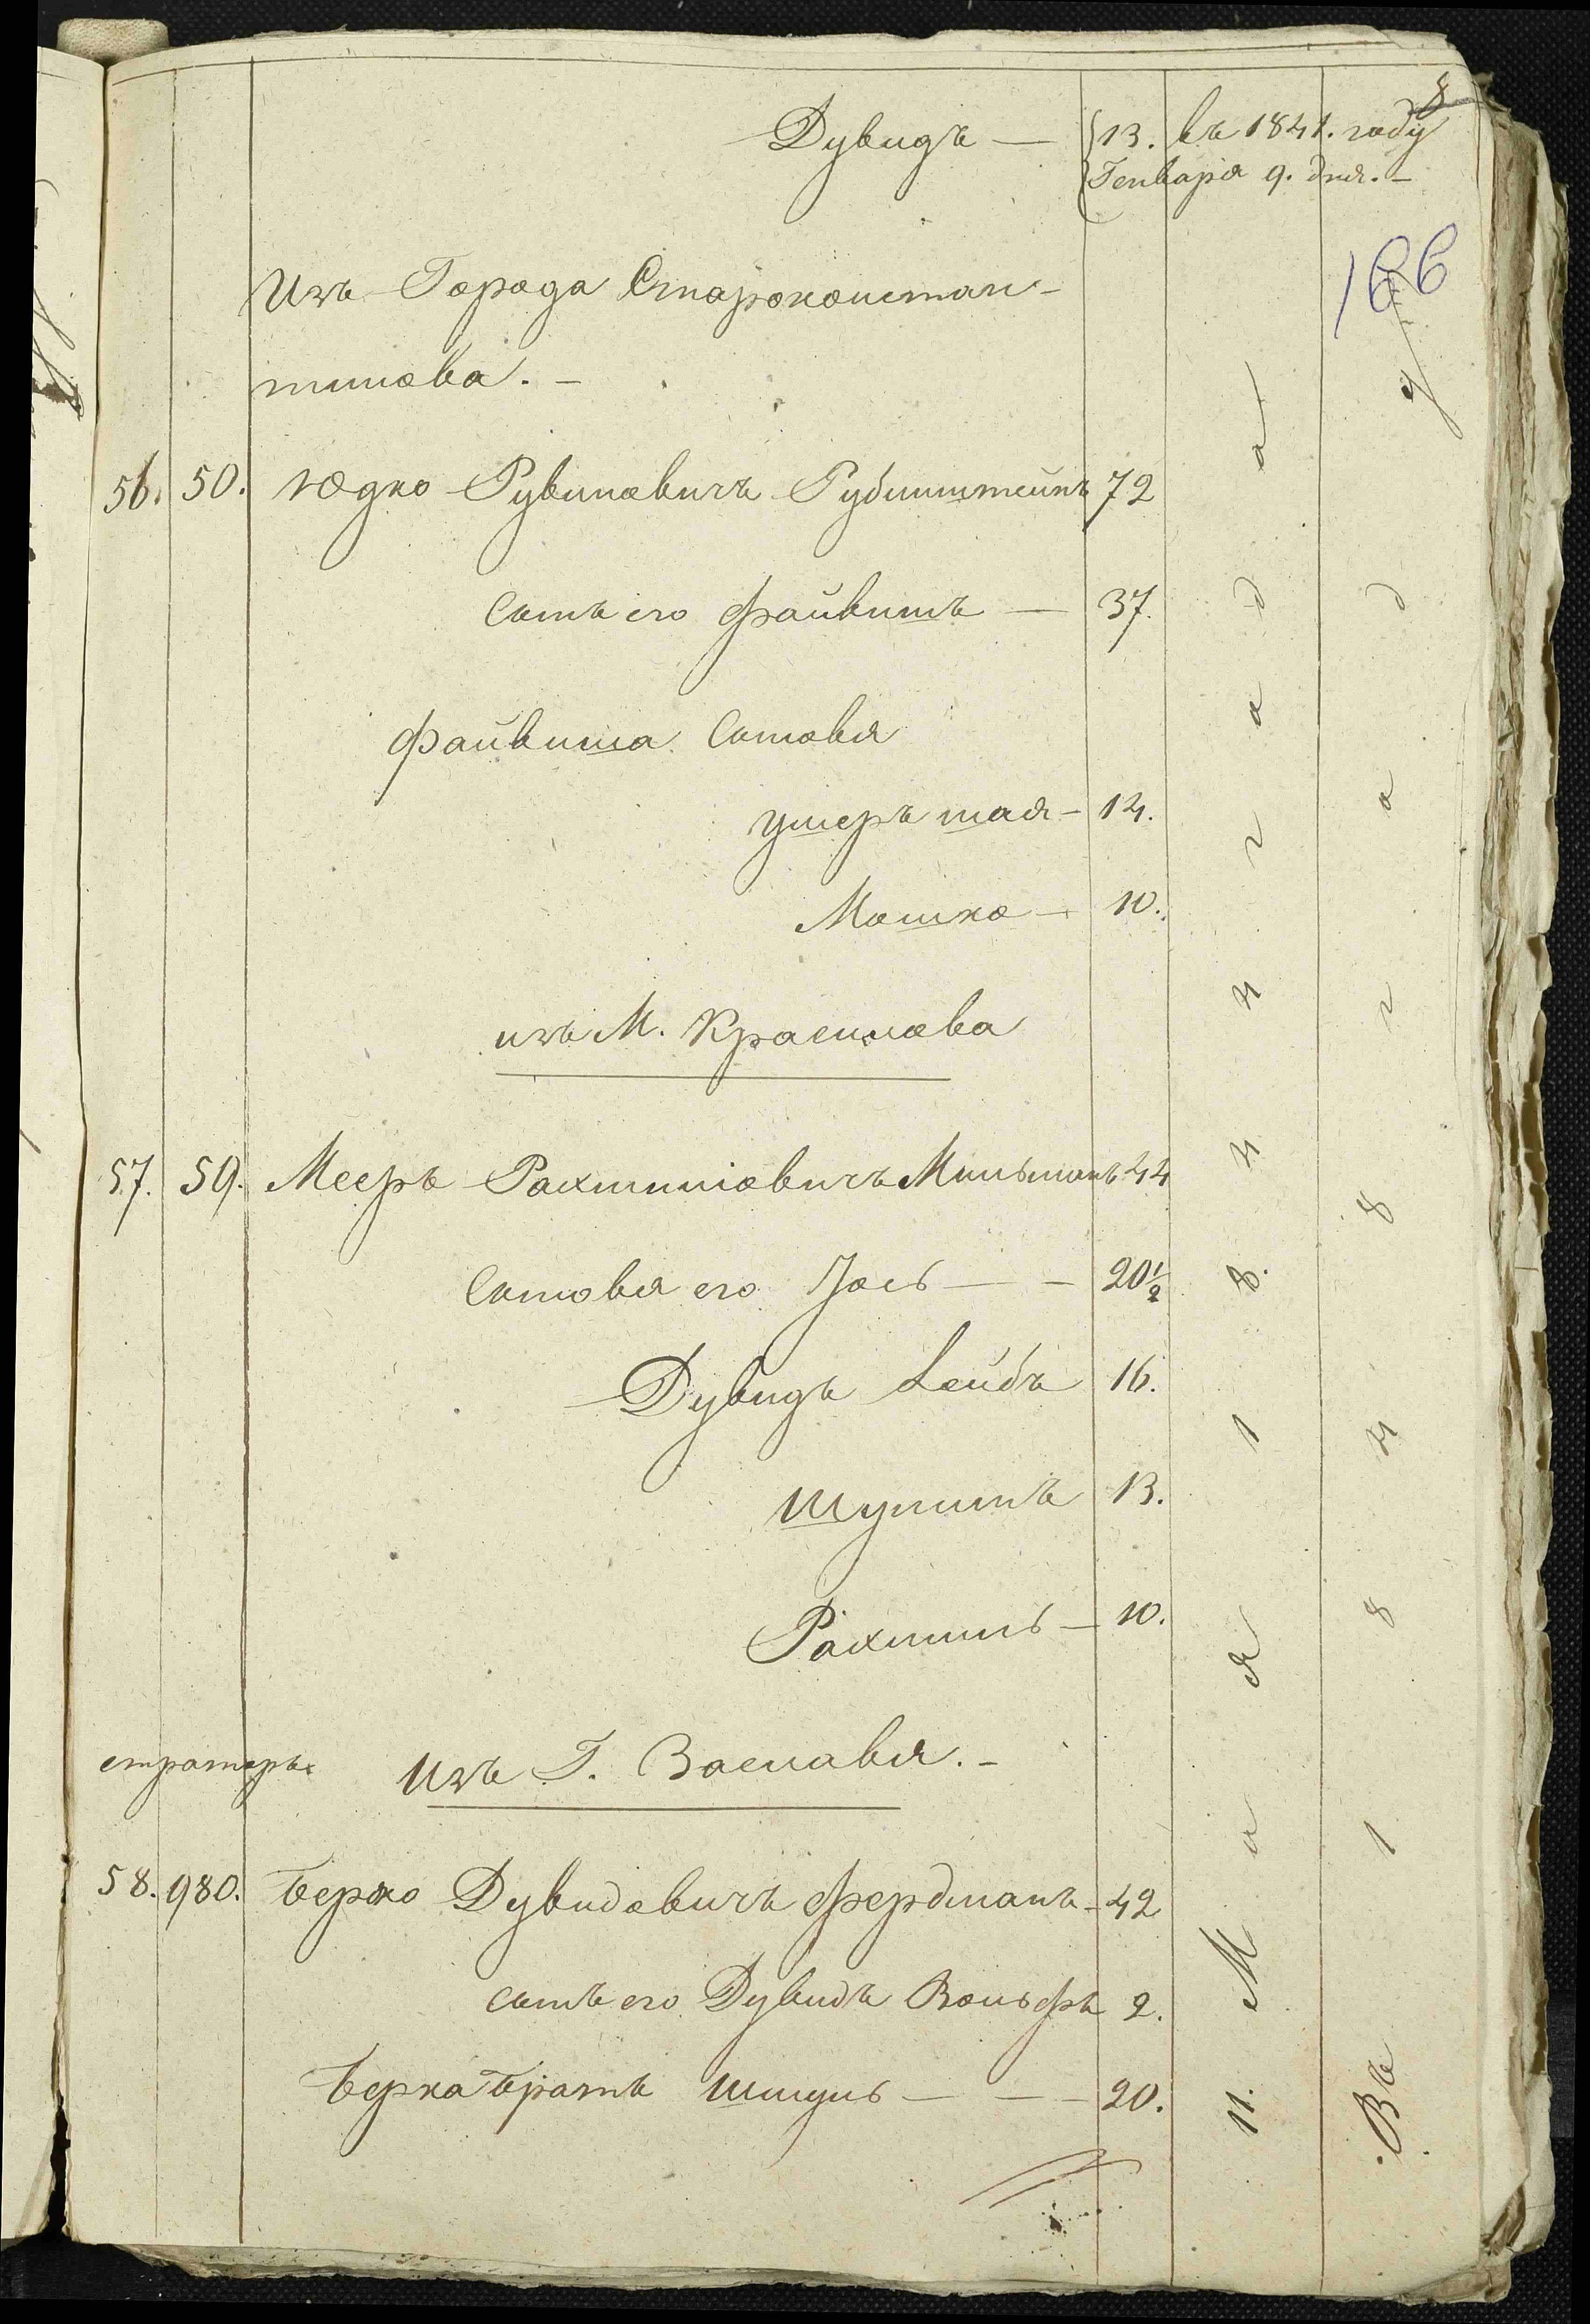 8
Дувидъ — 13. въ 1841. году
Генваря 9. дня. —
166
Изъ Города Староконстан-
тинова. —
56. 50. Юдко Рувиновичъ Рубинштейнъ 72
Сынъ его Файвишъ — 37.
Файвиша Сыновья
Умеръ шая — 14.
Мошко — 10.
изъ М. Красилова
57. 59. Мееръ Рахмиліовичъ Мильманъ 44
Сыновья его Іось — — 20½
Дувидъ Лейбъ 16.
Шулимъ 13.
Рахмиль — 10.
изъ Г. Заславля. —
58. 980. Берко Дувидовичъ Фердманъ — 42
сынъ его Дувидъ Вольфъ 2.
Берка Братъ Шмуль — — — 20.
11. Мая 1844 года
Въ 1848 году